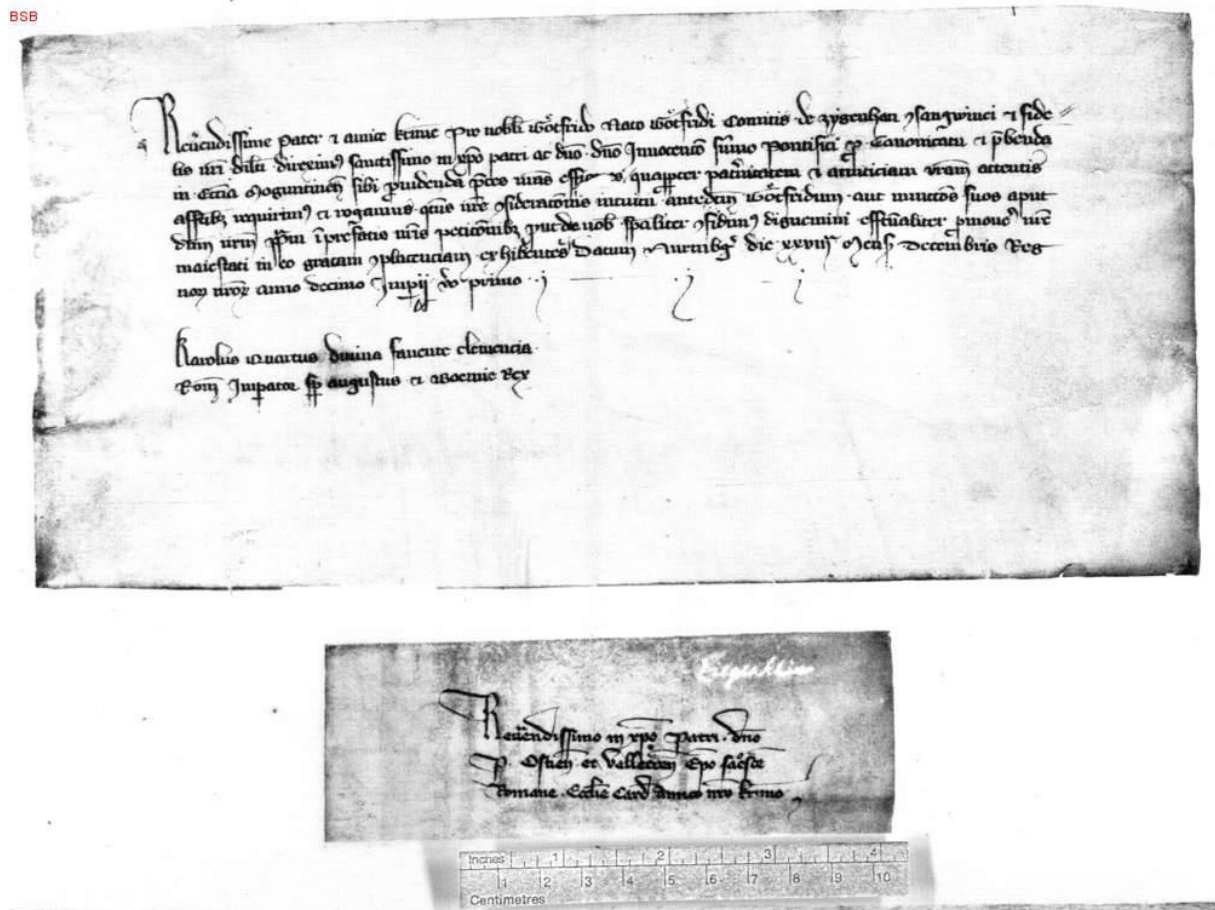 BSB
Reuendissime Pater et amice kme Pro nobili Gotfrido Nato Gotfridi Comitis de Zygenhan consangwinei et fide-
lis nri dilti direximus sanctissimo in xpo patri ac dno dno Innocento sumo Pontifici pro Canonicatu et pbenda
in Ecclia Moguntinen sibi prouidenda pces nras quappter paternitatem et amiciciam vram attentis
affctib requirimus et rogamus qtus nre consideracionis intuitu antedictum Gotfridum aut nunctios suos aput
dnm nrm in prefatis nris peticionib put de vob spaliter confidimus dignemini effctualiter pmouere nre
maiestati in eo gratam complacenciam exhibentes Datum Nurembg die xxvii Mens Decembris Reg
nor nror anno decimo Imperij vo primo
Karolus quartus diuina fauente clemencia
Rom Imperator sp augustus et Boemie Rex
Ziegenhain
Reuendissimo in xpo Patri dno
P. Ostien et Velletren Epo sacrste
Romane Ecclie Card Amico nro kmo
Inches 1 2 3 4
1 2 3 4 5 6 7 8 9 10
Centimetres